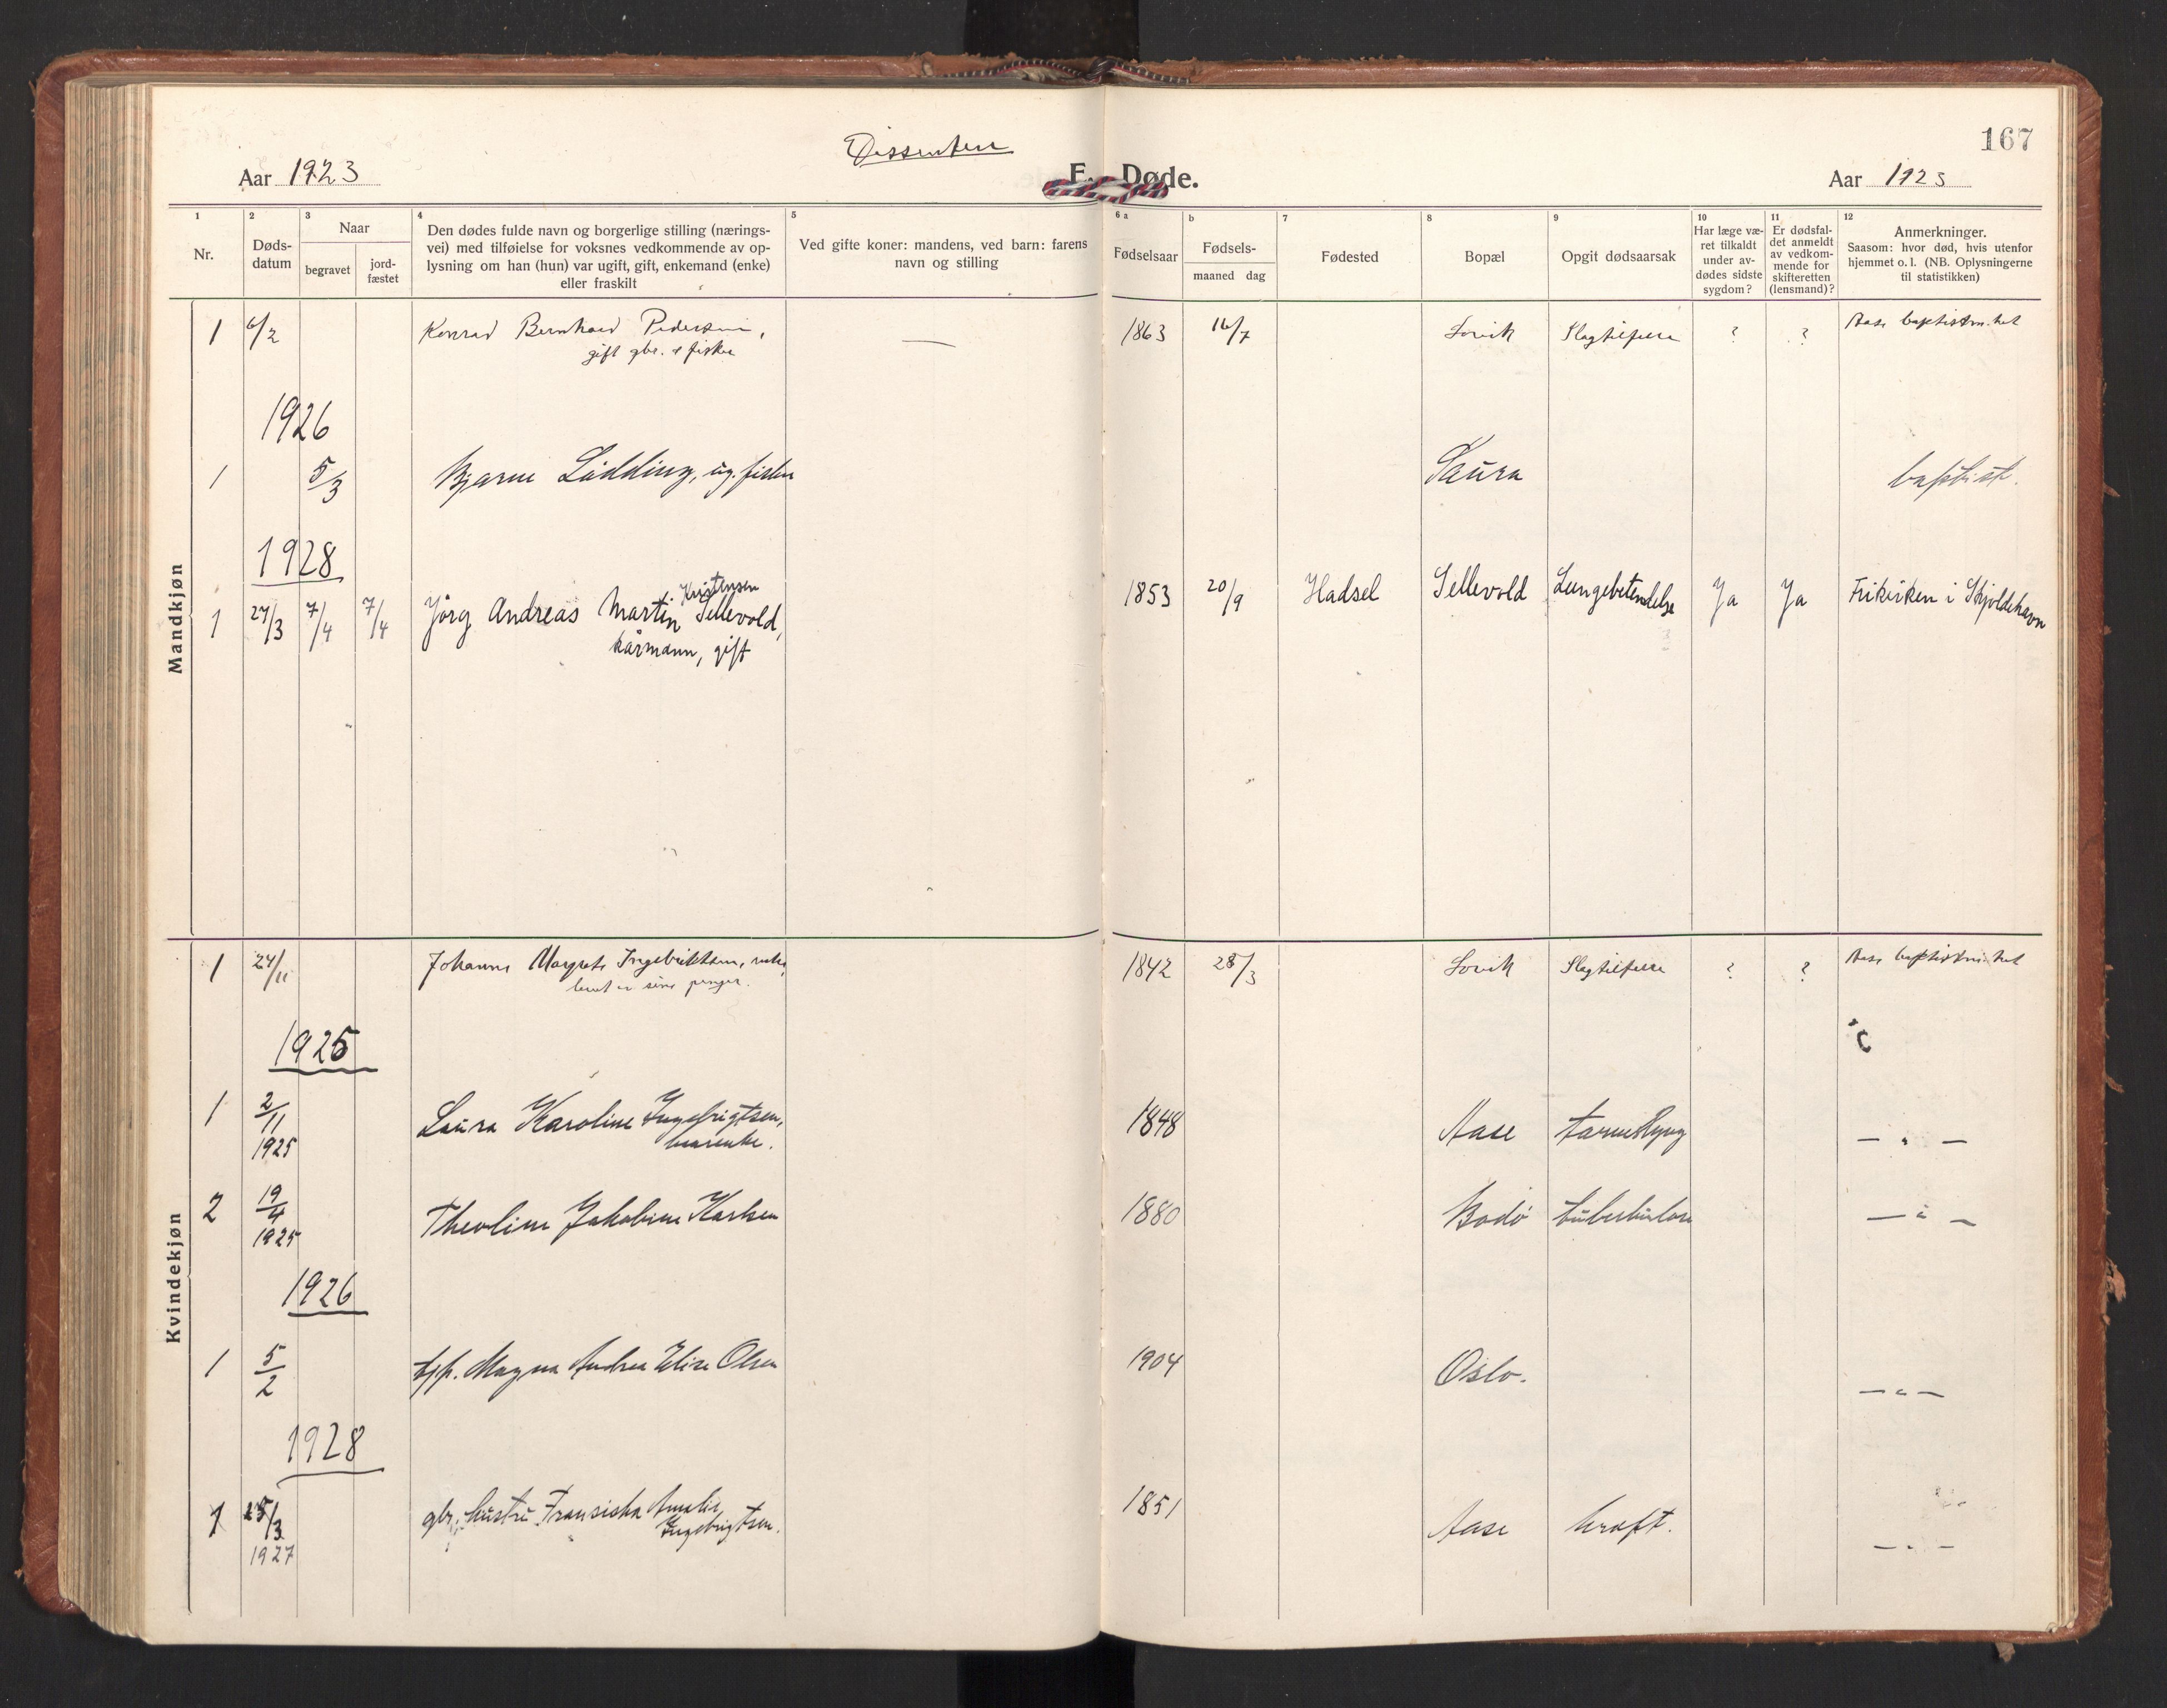 167
Dissentere
Aar 1923
E. Døde.
Aar 1923
1 2 3 4 5 6 a b 7 8 9 10 11 12
Nr.
Døds-
datum
Naar
begravet
jord-
fæstet
Den dødes fulde navn og borgerlige stilling (nærings-
vei) med tilføielse for voksnes vedkommende av op-
lysning om han (hun) var ugift, gift, enkemand (enke)
eller fraskilt
Ved gifte koner: mandens, ved barn: farens
navn og stilling
Fødselsaar
Fødsels-
maaned dag
Fødested
Bopæl
Opgit dødsaarsak
Har læge væ-
ret tilkaldt
under av-
dødes sidste
sygdom?
Er dødsfal-
det anmeldt
av vedkom-
mende for
skifteretten
(lensmand)?
Anmerkninger.
Saasom: hvor død, hvis utenfor
hjemmet o. l. (NB. Oplysningerne
til statistikken)
Mandkjøn
1 6/2 Konrad Bernhard Pedersen, — 1863 16/7 Lovik Slagtilfelle ? ? Aase baptistm.het
gift gbr. & fisker
1926
1 5/3 Bjarne Lidding, ug. fisker Saura baptist.
1928
Kristensen
1 27/3 7/4 7/4 Jörg Andreas Martin Sellevold, 1853 20/9 Hadsel Sellevold Lungebetendelse Ja Ja Frikirken i Skjoldehavn
kårmann, gift
Kvindekjøn
1 24/11 Johanna Margrete Ingebriktsen, enke, 1842 28/3 Lovik Slagtilfelle ? ? Aase baptistm.het
levet av sine penger.
1925
1 2/11 1925 Laura Karoline Ingebrigtsen, 1848 Aase tarmslyng — " —
kaarenke.
2 19/4 1925 Theoline Jakobine Karlsen 1880 Bodö tuberkulose — " —
1926
1 5/2 tjp. Magna Andrea Elise Olsen 1904 Oslo. — " —
1928
1 25/3 1927 gbr. hustru Fransiska Amalie 1851 Aase kræft. — " —
Ingebrigtsen.